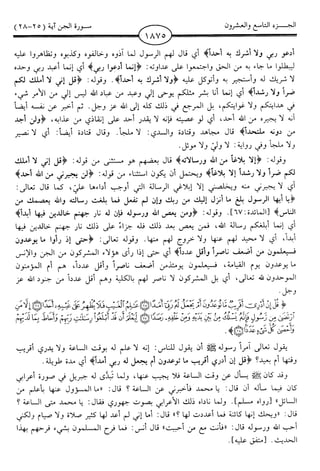 الجزء التاسع والعشرون
سورة الجن آية (٢٥-٢٨)
١٨٧٥
أدعو ربي ولا أشرك به أحداً﴾ أي قال لهم الرسول لما آذوه وخالفوه وكذبوه وتظاهروا عليه
ليبطلوا ما جاء به من الحق واجتمعوا على عداوته: ﴿إنما أدعو ربي﴾ أي إنما أعبد ربي وحده
لا شريك له وأستجير به وأتوكل عليه ﴿ولا أشرك به أحداً﴾. وقوله: ﴿قل إني لا أملك لكم
ضراً ولا رشداً﴾ أي إنما أنا بشر مثلكم يوحى إلي وعبد من عباد الله ليس إلي من الأمر شيء
في هدايتكم ولا غوايتكم، بل المرجع في ذلك كله إلى الله عز وجل. ثم أخبر عن نفسه أيضاً
أنه لا يجيره من الله أحد، أي لو عصيته فإنه لا يقدر أحد على إنقاذي من عذابه، ﴿ولن أجد
من دونه ملتحداً﴾ قال مجاهد وقتادة والسدي: لا ملجأ. وقال قتادة أيضاً: أي لا نصير
ولا ملجأ وفي رواية: لا ولي ولا موئل.
وقوله: ﴿إلا بلاغاً من الله ورسالاته﴾ قال بعضهم هو مستثنى من قوله: ﴿قل إني لا أملك
لكم ضراً ولا رشداً إلا بلاغاً﴾ ويحتمل أن يكون استثناء، من قوله: ﴿لن يجيرني من الله أحد﴾
أي لا يجيرني منه ويخلصني إلا إبلاغي الرسالة التي أوجب أداءها علي، كما قال تعالى:
﴿يا أيها الرسول بلغ ما أنزل إليك من ربك وإن لم تفعل فما بلغت رسالته والله يعصمك من
الناس﴾ [المائدة: ٦٧]. وقوله: ﴿ومن يعص الله ورسوله فإن له نار جهنم خالدين فيها أبداً﴾
أي إنما أبلغكم رسالة الله، فمن يعص بعد ذلك فله جزاءً على ذلك نار جهنم خالدين فيها
أبداً، أي لا محيد لهم عنها ولا خروج لهم منها. وقوله تعالى: ﴿حتى إذا رأوا ما يوعدون
فسيعلمون من أضعف ناصراً وأقل عدداً﴾ أي حتى إذا رأى هؤلاء المشركون من الجن والإنس
ما يوعدون يوم القيامة، فسيعلمون يومئذ من أضعف ناصراً وأقل عدداً، هم أم المؤمنون
الموحدون لله تعالى، أي بل المشركون لا ناصر لهم بالكلية وهم أقل عدداً من جنود الله عز
وجل.
﴿قُلْ إِنْ أَدْرِي أَقَرِيبٌ مَّا تُوعَدُونَ أَمْ يَجْعَلُ لَهُ رَبِّي أَمَدًا عَالِمُ الْغَيْبِ فَلَا يُظْهِرُ عَلَى غَيْبِهِ أَحَدًا إِلَّا
مَنِ ارْتَضَى مِن رَّسُولٍ فَإِنَّهُ يَسْلُكُ مِن بَيْنِ يَدَيْهِ وَمِنْ خَلْفِهِ رَصَدًا لِّيَعْلَمَ أَن قَدْ أَبْلَغُوا رِسَالَاتِ رَبِّهِمْ وَأَحَاطَ بِمَا لَدَيْهِمْ
وَأَحْصَى كُلَّ شَيْءٍ عَدَدًا﴾
يقول تعالى آمراً رسوله ﷺ أن يقول للناس: إنه لا علم له بوقت الساعة ولا يدري أقريب
وقتها أم بعيد؟ ﴿قل إن أدري أقريب ما توعدون أم يجعل له ربي أمداً﴾ أي مدة طويلة.
وقد كان ﷺ يسأل عن وقت الساعة فلا يجيب عنها، ولما تبدَّى له جبريل في صورة أعرابي
كان فيما سأله أن قال: يا محمد فأخبرني عن الساعة ؟ قال: «ما المسؤول عنها بأعلم من
السائل» [رواه مسلم]. ولما ناداه ذلك الأعرابي بصوت جهوري فقال: يا محمد متى الساعة ؟
قال: «ويحك إنها كائنة فما أعددت لها ؟» قال: أما إني لم أعد لها كثير صلاة ولا صيام ولكني
أحب الله ورسوله قال: «فأنت مع من أحببت» قال أنس: فما فرح المسلمون بشيء فرحهم بهذا
الحديث. [متفق عليه].